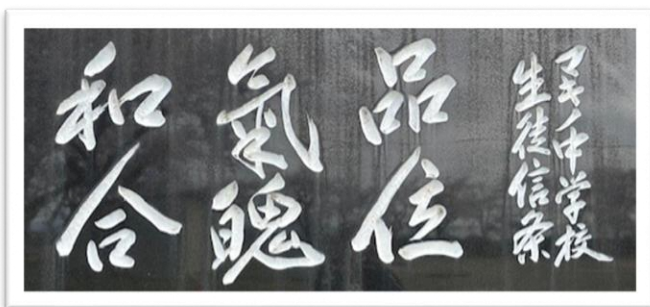 中学校
生徒信条
品位
氣魄
和合